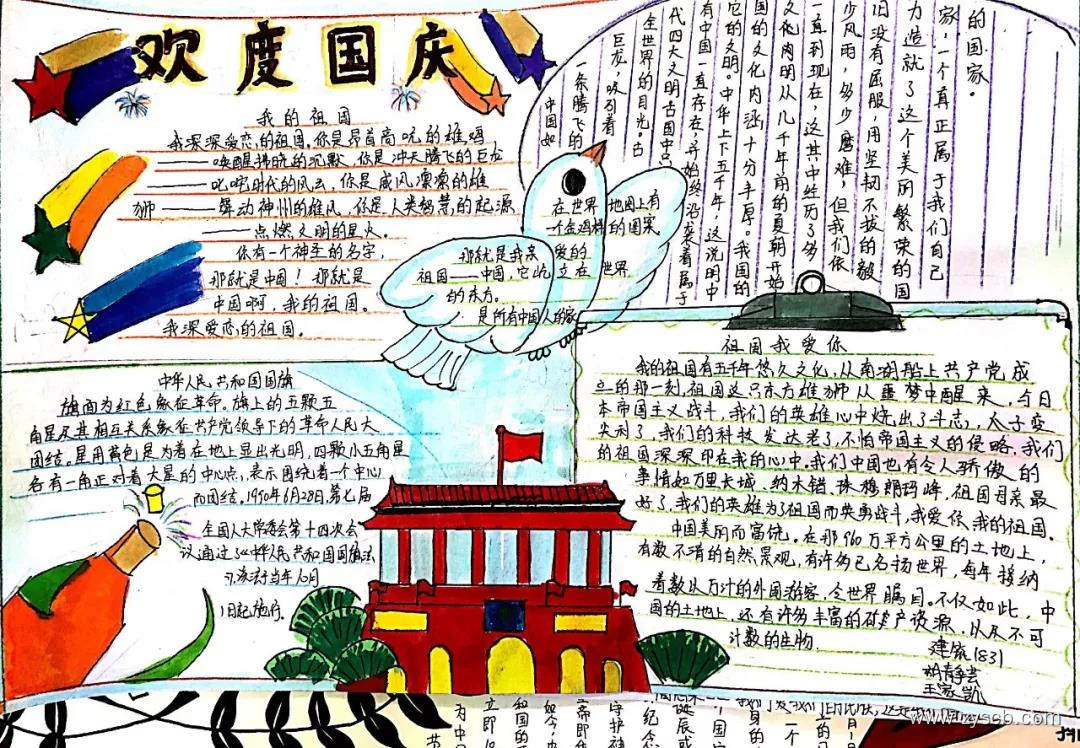 欢度国庆
我的祖国
我深深爱恋的祖国。你是昂首高吭的雄鸡
——唤醒拂晓的沉默,你是冲天腾飞的巨龙
——叱咤时代的风云,你是威风凛凛的雄
狮——舞动神州的雄风,你是人类智慧的起源
——点燃文明的星火。
你有一个神圣的名字,
那就是中国!那就是
中国啊,我的祖国。
我深爱恋的祖国。
的国家。
家,一个真正属于我们自己
力造就了这个美丽繁荣的国
旧没有屈服,用坚韧不拔的毅
少风雨,多少磨难,但我们依
一直到现在,这其中经历了多
文化内明从几千年前的夏朝开始
国的文化内涵十分丰厚。我国的
它的文明。中华上下五千年,这说明中
有中国一直存在,并始终沿袭着属于
代四大文明古国中只
全世界的目光。古
巨龙,吸引着
一条腾飞的
中国如
在世界地图上有
一个金鸡样的图案。
那就是我亲爱的
祖国——中国,它屹立在世界
的东方。
是所有中国人的家
中华人民共和国国旗
旗面为红色象征革命。旗上的五颗五
角星及其相互关系象征共产党领导下的革命人民大
团结。星用黄色是为着在地上显出光明,四颗小五角星
各有一角正对着大星的中心点,表示围绕着一个中心
而团结。1990年6月28日,第七届
全国人大常委会第十四次会
议通过了《中华人民共和国国旗法
》,该法于当年10月
1日起施行。
祖国我爱你
我的祖国有五千年悠久文化,从南湖船上共产党成
立的那一刻,祖国这只东方雄狮从噩梦中醒来,今日
本帝国主义战斗,我们的英雄心中烧出了斗志,太子变
尖利了,我们的科技发达老了,不怕帝国主义的侵略,我们
的祖国深深印在我的心中。我们中国也有令人骄傲的
事情如万里长城,纳木错,珠穆朗玛峰,祖国母亲最
好了,我们的英雄为了祖国而英勇战斗,我爱你,我的祖国。
中国美丽而富饶。在那960万平方公里的土地上,
有数不清的自然景观,有许多已名扬世界,每年接纳
着数以万计的外国游客,令世界瞩目。不仅如此,中
国的土地上,还有许多丰富的矿产资源,以及不可
计数的生物.
建筑1831
www.zyscb.com